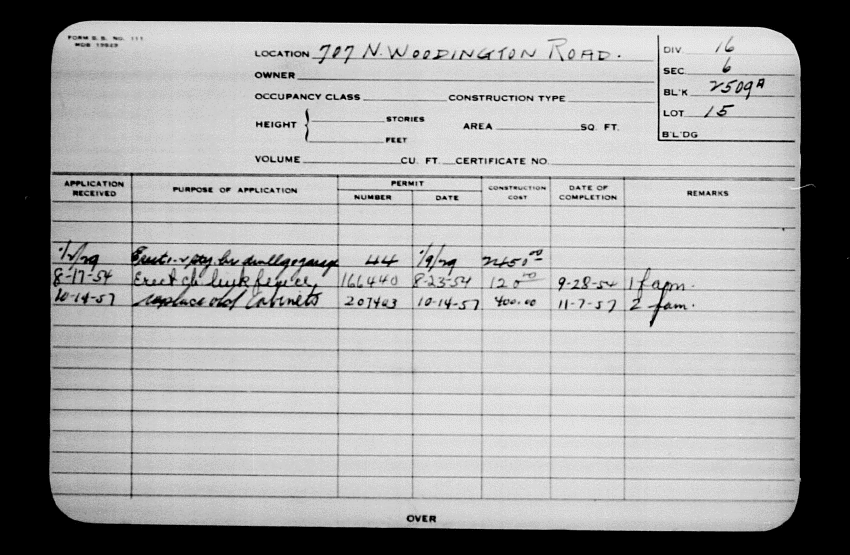 FORM B. S. NO. 111
MOB 13523
LOCATION 707 N. WOODINGTON ROAD.
OWNER
OCCUPANCY CLASS CONSTRUCTION TYPE
HEIGHT { STORIES AREA SQ. FT.
FEET
VOLUME CU. FT. CERTIFICATE NO.
DIV. 16
SEC. 6
BL'K 2509A
LOT 15
B'L'DG
APPLICATION RECEIVED PURPOSE OF APPLICATION PERMIT NUMBER DATE CONSTRUCTION COST DATE OF COMPLETION REMARKS
Erect 44 1/9/29 2450.00
8-17-54 Erect ch link fence 166440 8-23-54 120.00 9-28-54 1 fam.
10-14-57 replace old Cabinets 207403 10-14-57 400.00 11-7-57 2 fam.
OVER